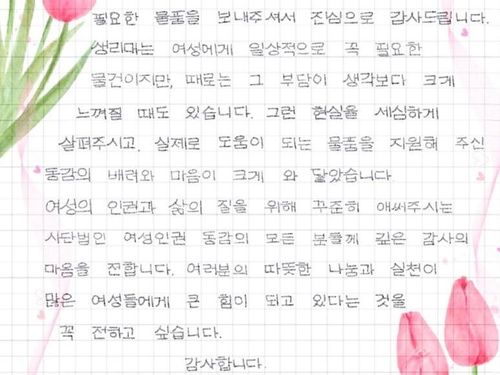 필요한 물품을 보내주셔서 진심으로 감사드립니다.
생리대는 여성에게 일상적으로 꼭 필요한
물건이지만, 때로는 그 부담이 생각보다 크게
느껴질 때도 있습니다. 그런 현실을 세심하게
살펴주시고, 실제로 도움이 되는 물품을 지원해 주신
동감의 배려와 마음이 크게 와 닿았습니다.
여성의 인권과 삶의 질을 위해 꾸준히 애써주시는
사단법인 여성인권 동감의 모든 분들께 깊은 감사의
마음을 전합니다. 여러분의 따뜻한 나눔과 실천이
많은 여성들에게 큰 힘이 되고 있다는 것을
꼭 전하고 싶습니다.
감사합니다.